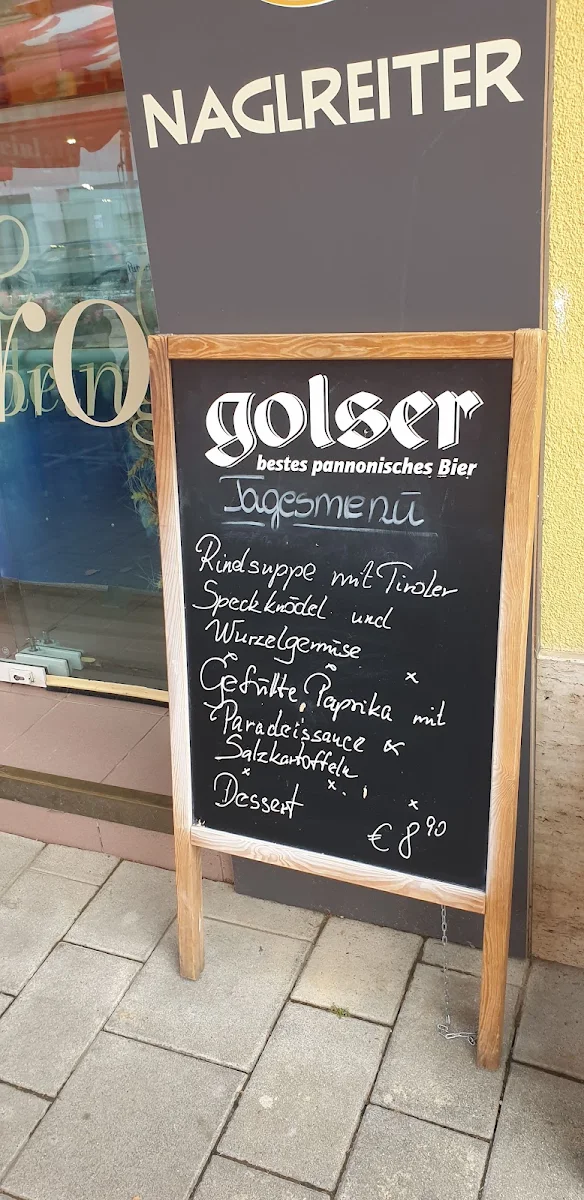 NAGLREITER
golser
bestes pannonisches Bier
Tagesmenü
Rindsuppe mit Tiroler
Speckknödel und
Wurzelgemüse
x x x
Gefüllte Paprika mit
Paradeissauce &
Salzkartoffeln
x x x
Dessert
€ 8 90